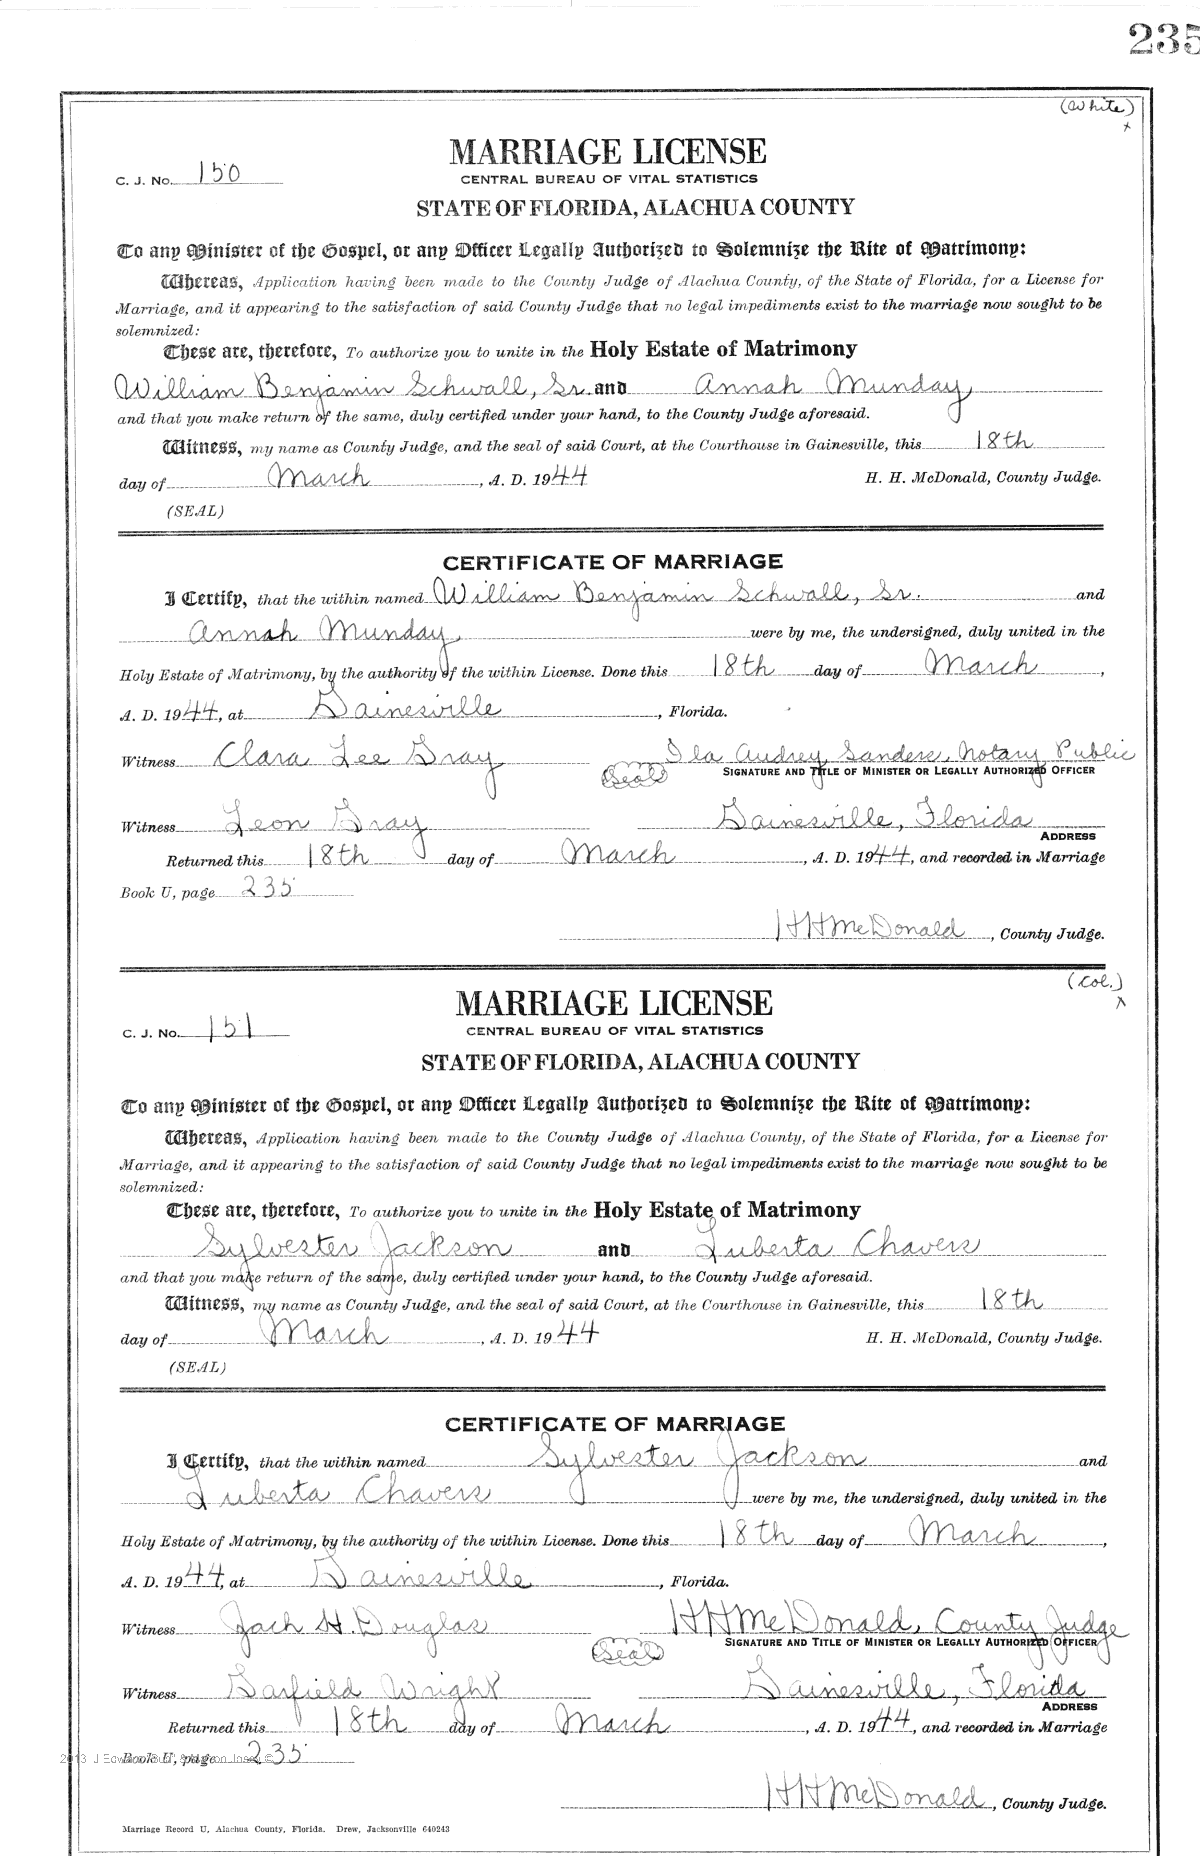 235
(White)
x
MARRIAGE LICENSE
C. J. No. 150
CENTRAL BUREAU OF VITAL STATISTICS
STATE OF FLORIDA, ALACHUA COUNTY
To any Minister of the Gospel, or any Officer Legally Authorized to Solemnize the Rite of Matrimony:
Whereas, Application having been made to the County Judge of Alachua County, of the State of Florida, for a License for
Marriage, and it appearing to the satisfaction of said County Judge that no legal impediments exist to the marriage now sought to be
solemnized:
These are, therefore, To authorize you to unite in the Holy Estate of Matrimony
William Benjamin Schwall, Sr. and Annah Munday
and that you make return of the same, duly certified under your hand, to the County Judge aforesaid.
Witness, my name as County Judge, and the seal of said Court, at the Courthouse in Gainesville, this 18th
day of March, A. D. 1944 H. H. McDonald, County Judge.
(SEAL)
CERTIFICATE OF MARRIAGE
I Certify, that the within named William Benjamin Schwall, Sr. and
Annah Munday were by me, the undersigned, duly united in the
Holy Estate of Matrimony, by the authority of the within License. Done this 18th day of March,
A. D. 1944, at Gainesville, Florida.
Witness Clara Lee Gray Ila Audrey Sanders, Notary Public
(Seal) SIGNATURE AND TITLE OF MINISTER OR LEGALLY AUTHORIZED OFFICER
Witness Leon Gray Gainesville, Florida
ADDRESS
Returned this 18th day of March, A. D. 1944, and recorded in Marriage
Book U, page 235
HHMcDonald, County Judge.
(Col.)
x
MARRIAGE LICENSE
C. J. No. 151
CENTRAL BUREAU OF VITAL STATISTICS
STATE OF FLORIDA, ALACHUA COUNTY
To any Minister of the Gospel, or any Officer Legally Authorized to Solemnize the Rite of Matrimony:
Whereas, Application having been made to the County Judge of Alachua County, of the State of Florida, for a License for
Marriage, and it appearing to the satisfaction of said County Judge that no legal impediments exist to the marriage now sought to be
solemnized:
These are, therefore, To authorize you to unite in the Holy Estate of Matrimony
Sylvester Jackson and Luberta Chavers
and that you make return of the same, duly certified under your hand, to the County Judge aforesaid.
Witness, my name as County Judge, and the seal of said Court, at the Courthouse in Gainesville, this 18th
day of March, A. D. 1944 H. H. McDonald, County Judge.
(SEAL)
CERTIFICATE OF MARRIAGE
I Certify, that the within named Sylvester Jackson and
Luberta Chavers were by me, the undersigned, duly united in the
Holy Estate of Matrimony, by the authority of the within License. Done this 18th day of March,
A. D. 1944, at Gainesville, Florida.
Witness Jack H. Douglas HHMcDonald, County Judge
(Seal) SIGNATURE AND TITLE OF MINISTER OR LEGALLY AUTHORIZED OFFICER
Witness Garfield Wright Gainesville, Florida
ADDRESS
Returned this 18th day of March, A. D. 1944, and recorded in Marriage
Book U, page 235
HHMcDonald, County Judge.
Marriage Record U, Alachua County, Florida. Drew, Jacksonville 640243